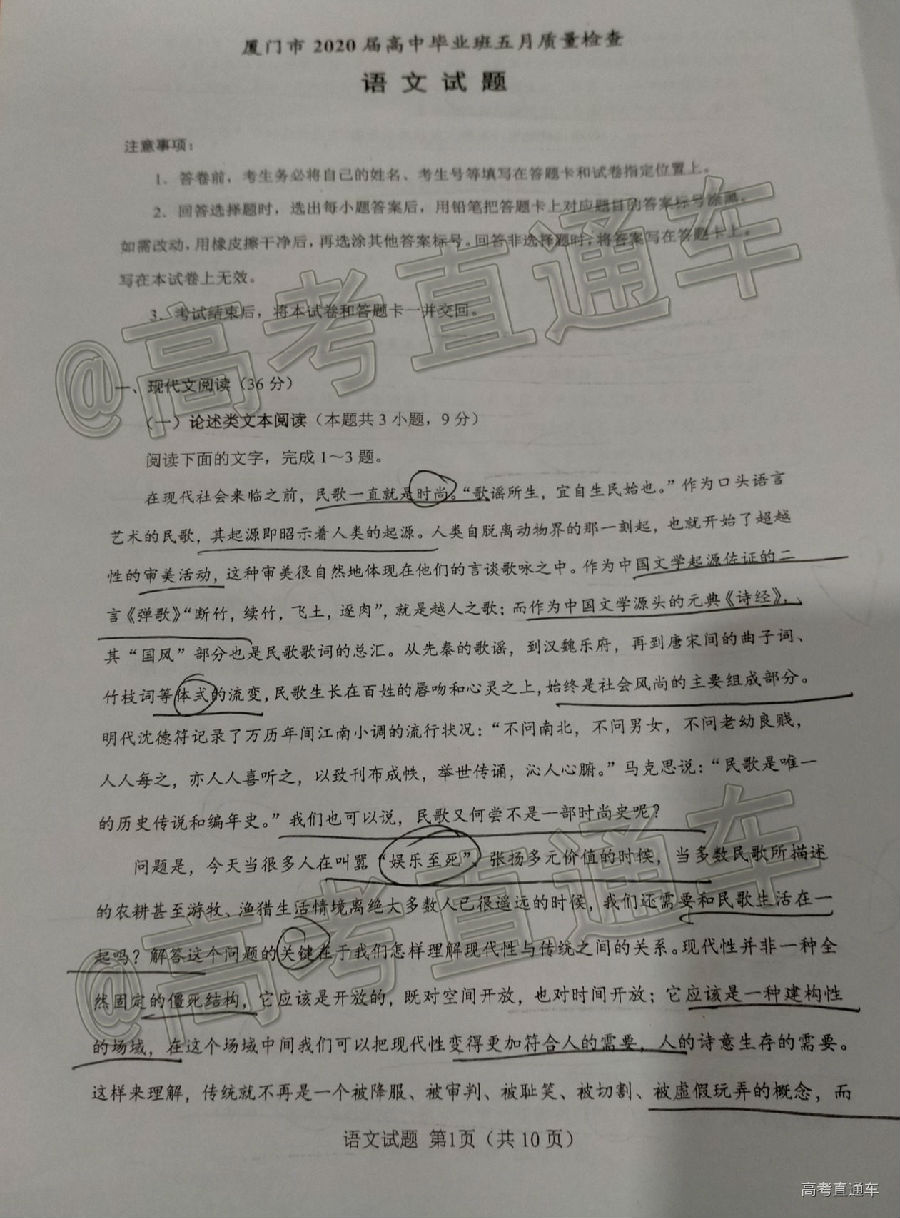 厦门市 2020 届高中毕业班五月质量检查
语 文 试 题
注意事项：
1．答卷前，考生务必将自己的姓名、考生号等填写在答题卡和试卷指定位置上。
2．回答选择题时，选出每小题答案后，用铅笔把答题卡上对应题目的答案标号涂黑。
如需改动，用橡皮擦干净后，再选涂其他答案标号。回答非选择题时，将答案写在答题卡上。
写在本试卷上无效。
3．考试结束后，将本试卷和答题卡一并交回。
@高考直通车
一、现代文阅读（36 分）
（一）论述类文本阅读（本题共 3 小题，9 分）
阅读下面的文字，完成 1～3 题。
在现代社会来临之前，民歌一直就是时尚。“歌谣所生，宜自生民始也。”作为口头语言
艺术的民歌，其起源即昭示着人类的起源。人类自脱离动物界的那一刻起，也就开始了超越
性的审美活动，这种审美很自然地体现在他们的言谈歌咏之中。作为中国文学起源佐证的二
言《弹歌》“断竹，续竹，飞土，逐肉”，就是越人之歌；而作为中国文学源头的元典《诗经》，
其“国风”部分也是民歌歌词的总汇。从先秦的歌谣，到汉魏乐府，再到唐宋间的曲子词、
竹枝词等体式的流变，民歌生长在百姓的唇吻和心灵之上，始终是社会风尚的主要组成部分。
明代沈德符记录了万历年间江南小调的流行状况：“不问南北，不问男女，不问老幼良贱，
人人每之，亦人人喜听之，以致刊布成帙，举世传诵，沁人心腑。”马克思说：“民歌是唯一
的历史传说和编年史。”我们也可以说，民歌又何尝不是一部时尚史呢？
问题是，今天当很多人在叫嚣“娱乐至死”、张扬多元价值的时候，当多数民歌所描述
的农耕甚至游牧、渔猎生活情境离绝大多数人已很遥远的时候，我们还需要和民歌生活在一
起吗？解答这个问题的关键在于我们怎样理解现代性与传统之间的关系。现代性并非一种全
然固定的僵死结构，它应该是开放的，既对空间开放，也对时间开放；它应该是一种建构性
的场域，在这个场域中间我们可以把现代性变得更加符合人的需要，人的诗意生存的需要。
这样来理解，传统就不再是一个被降服、被审判、被耻笑、被切割、被虚假玩弄的概念，而
@高考直通车
语文试题 第1页（共 10 页）
高考直通车